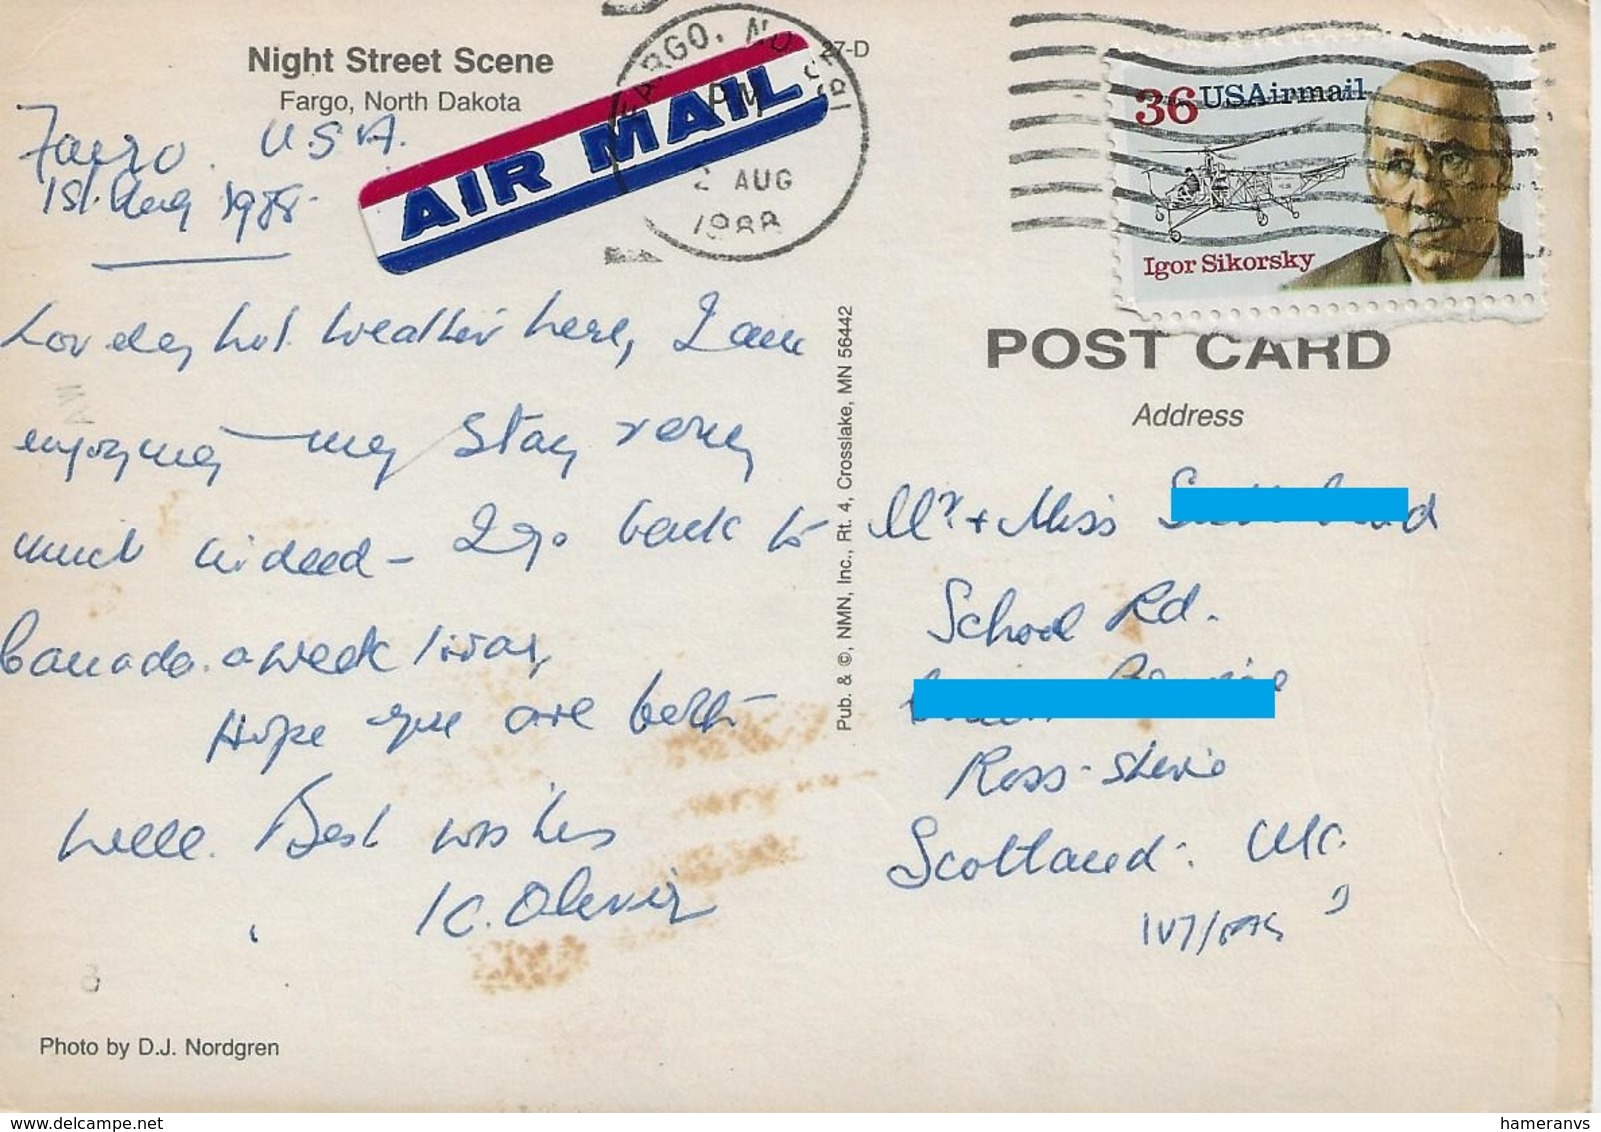 Night Street Scene
Fargo, North Dakota
27-D
Fargo. U S A.
1st. Aug 1988.
AIR MAIL
FARGO, ND
PM
2 AUG
1988
36 USAirmail
Igor Sikorsky
Lovely hot weather here, I am
enjoying my stay very
much indeed - I go back to
Canada. a week today,
Hope you are both
well. Best wishes
K. Olivir
Pub. & ©, NMN, Inc., Rt. 4, Crosslake, MN 56442
POST CARD
Address
Mr + Miss
School Rd.
Ross-shire
Scotland. UK.
Photo by D.J. Nordgren
delcampe.net
hameranvs